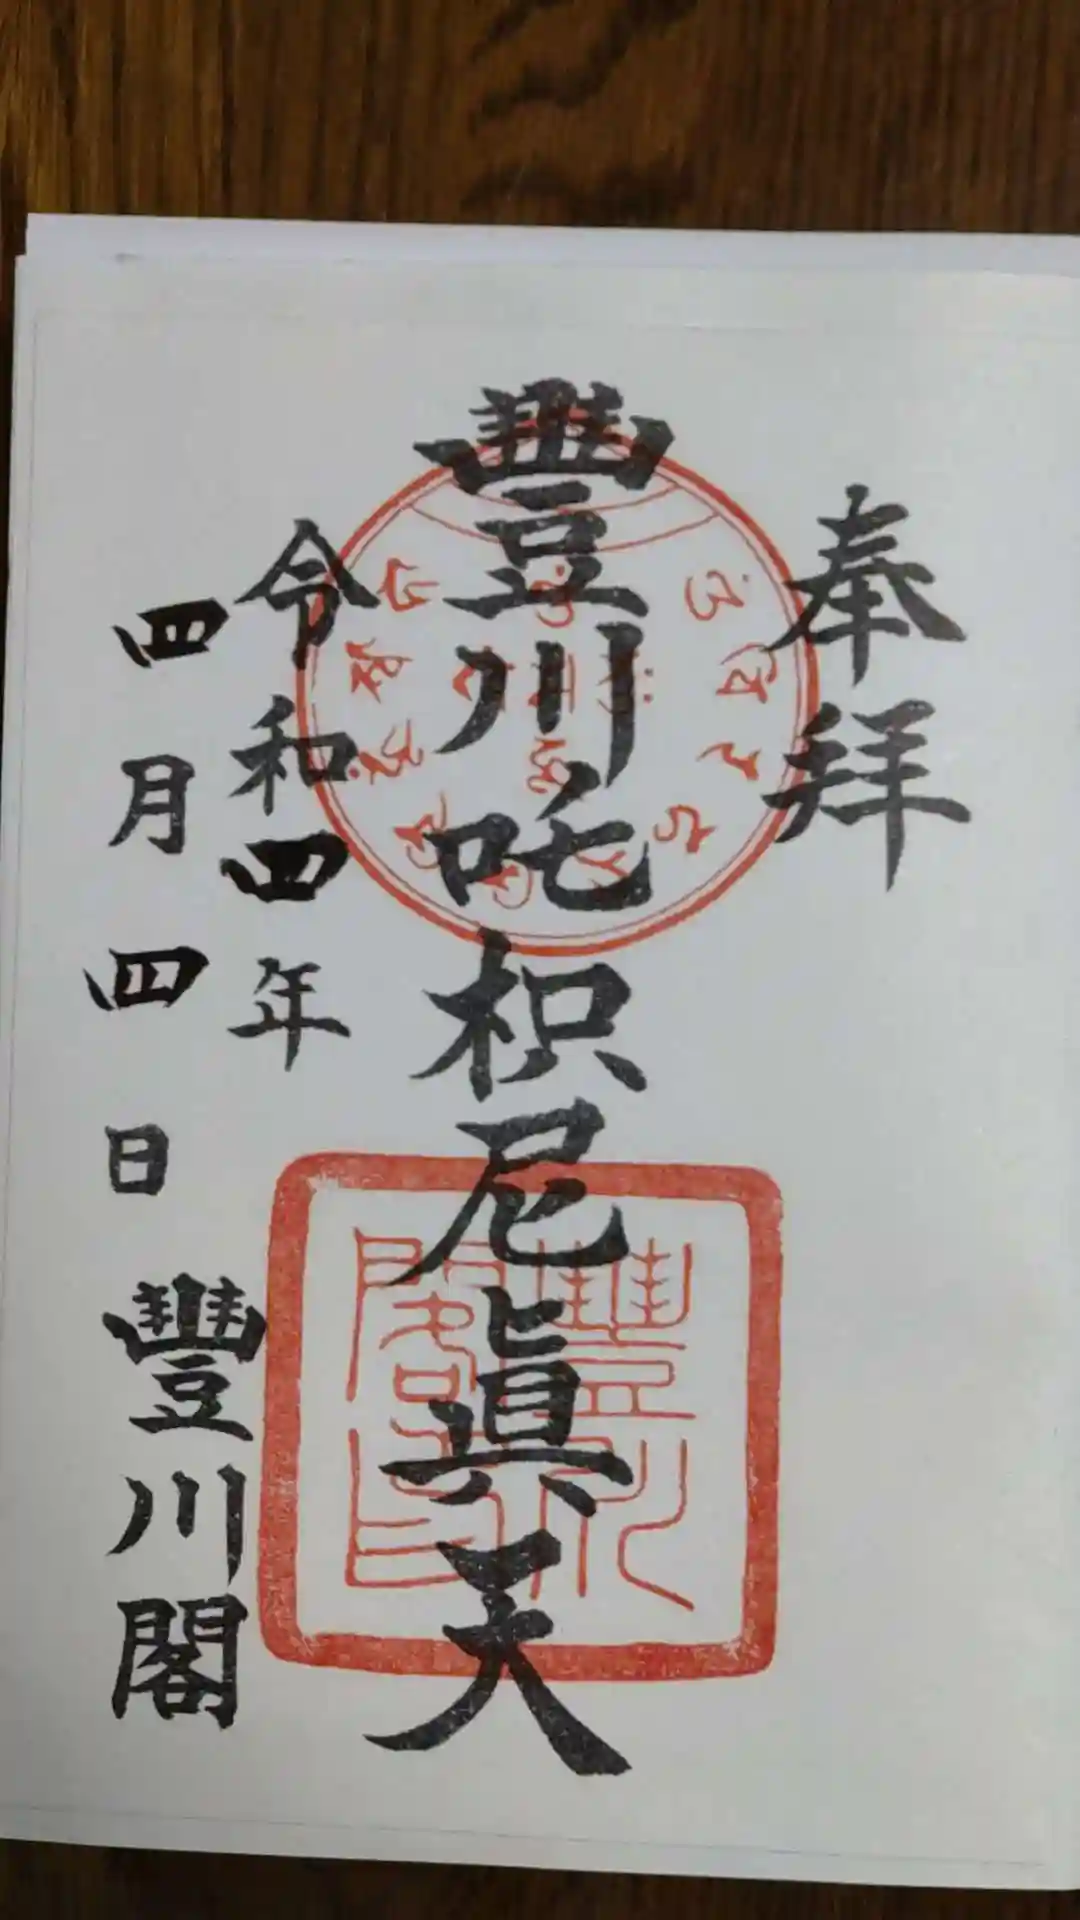 奉拜
豐川吒枳尼眞天
令和四年
四月四日
豐川閣
豐川閣印